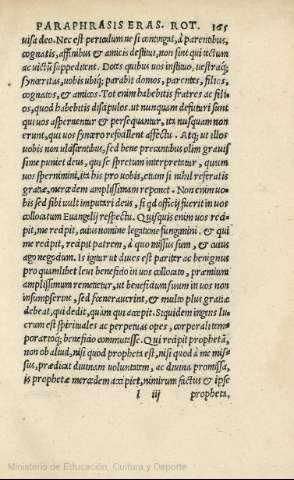 PARAPHRASIS ERAS. ROT. 165
visa deo. Nec est periculum ne si contingat, à parentibus,
cognatis, affinibus & amicis destitui, non sint qui uictum
ac uictũ suppeditent. Dotes quibus uos instituo, uestraq;
synceritas, uobis ubiq; parabit domos, parentes, filios,
cognatos, & amicos. Tot enim habebitis fratres ac filios
, quod habebitis discipulos. ut nunquam defuturi sunt
qui uos aspernentur & persequantur, ita nusquam non
erunt, qui uos syncæro refocillent affectu. Atq; ut illos
uobis non ulciscentibus, sed bene precantibus olim grauissime
puniet deus, qui se spretum interpretetur, quum
uos spernimini, ita his pro uobis, etiam si nihil referatis
gratiæ, mercedem amplissimam reponet. Non enim uobis
sed sibi uult imputari deus, si qd officij fuerit in uos
collocatum Euangelij respectu. Quisquis enim uos recipit,
me recipit, cuius nomine legatione fungimini. & qui
me recipit, recipit patrem, à quo missus sum, & cuius
ago negocium. Is igitur ut diues est pariter ac benignus
pro quamlibet leui beneficio in uos collocato, præmium
amplissimum remetietur, ut beneficium suum in uos non
insumpserint, sed fœnerauerint, & multo plus gratiæ
debeat, qui dedit, quàm qui accepit. Siquidem ingens lucrum
est spirituales ac perpetuas opes, corporali temporarioq;
beneficio commutasse. Qui recipit prophetã,
non ob aliud, nisi quod propheta est, nisi quod à me missus,
prædicat diuinam uoluntatem, ac diuina promissa,
is prophetæ mercedem accipiet, nimirum factus & ipse
l iij propheta,
Ministerio de Educación, Cultura y Deporte